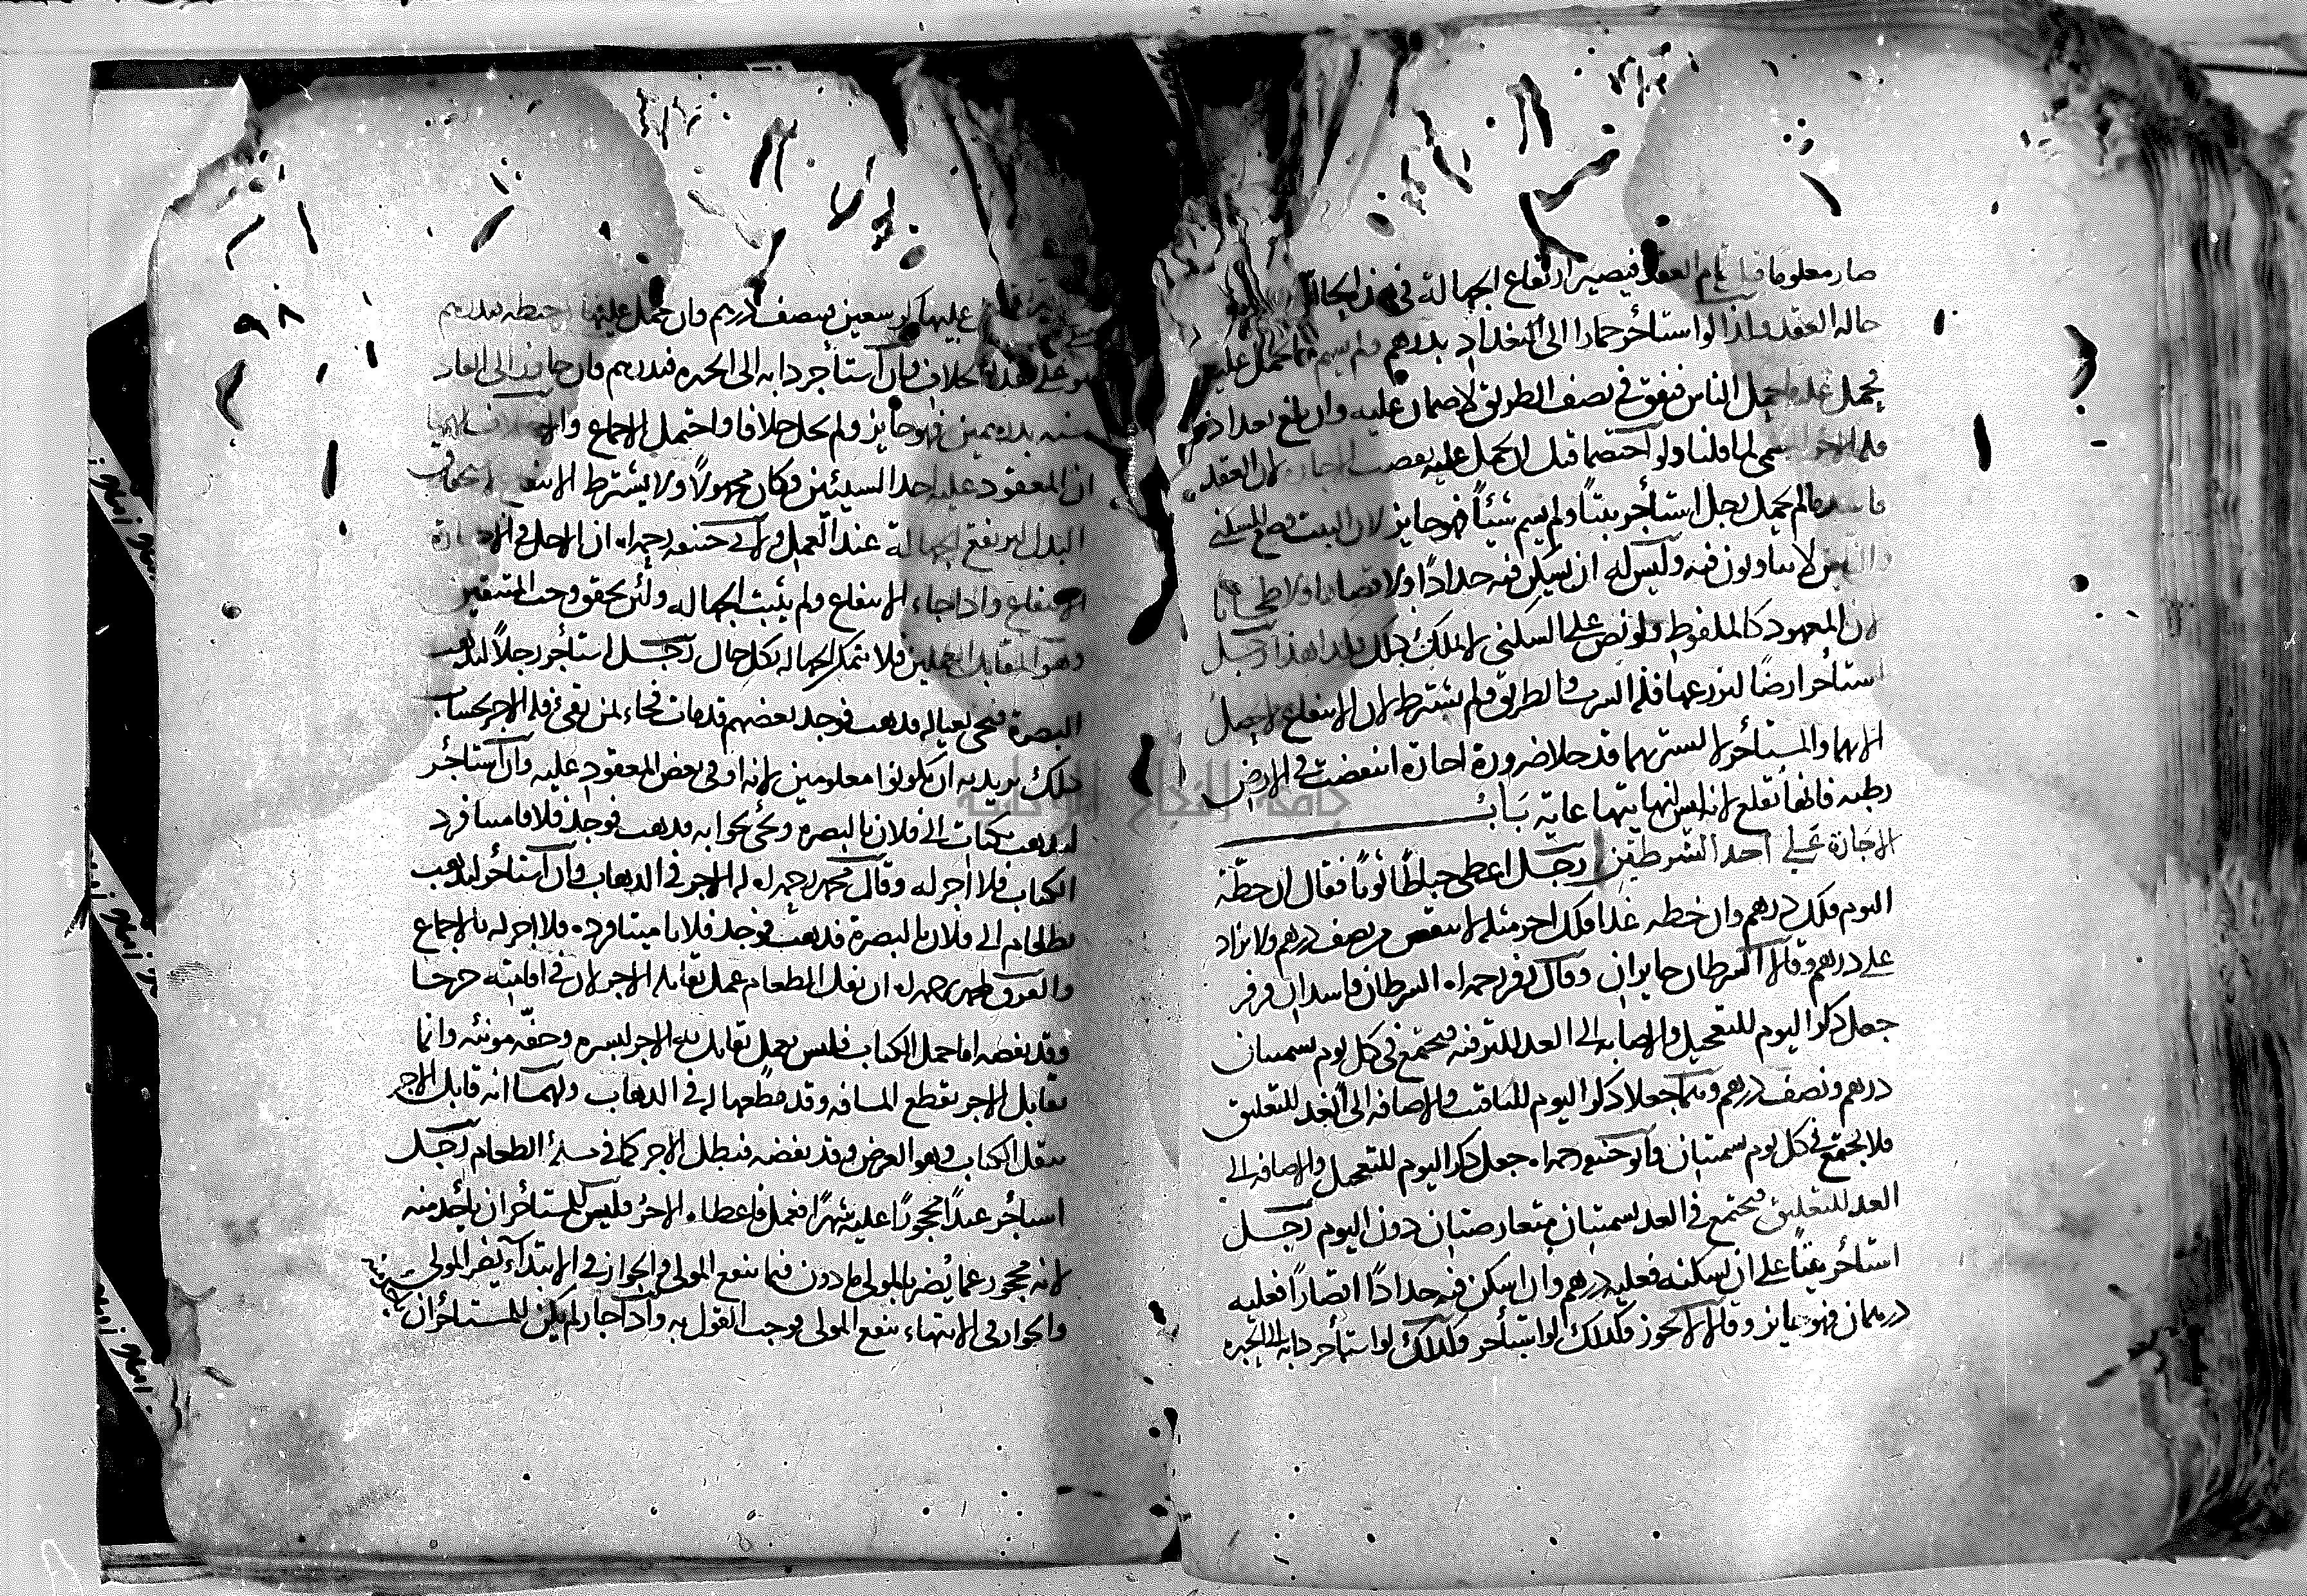 صار معلوما قبل تمام العقد فيصير ارتفاع الجهالة في هذه الحالة
حالة العقد ولذا لو استأجر حمارا الى بغداد بدرهم ولم يسم ما يحمل عليه
فحمل عليه ما يحمل الناس فنفق في نصف الطريق لا ضمان عليه وان بلغ بغداد
فله الاجر المسمى لما قلنا ولو اختصما قبل ان يحمل عليه نقضت الاجارة لان العقد
فاسد ما لم يحمل رجل استأجر بيتا ولم يسم شيئا فهو جايز لان البيت يصلح للسكنى
والناس لا يتفاوتون فيه وليس له ان يسكن فيه حدادا ولا قصارا ولا طحانا
لان المعهود كالملفوظ ولو نص على السكنى لا يملك ذلك فكذا هذا رجل
استأجر ارضا ليزرعها فله الشرب والطريق ولم يشترط لان الانتفاع لا يحصل
الا بهما والمستأجر لا يستر بهما فدخلا ضرورة اجارة انقضت وفي الارض
رطبة فانها تقلع لانه ليس لنهايتها غاية باب
الاجارة على احد الشرطين رجل اعطى خياطا ثوبا فقال ان خطته
اليوم فلك درهم وان خطته غدا فلك اجر مثله لا ينقص من نصف درهم ولا يزاد
على درهم وقالا الشرطان جايزان وقال زفر رحمه الله الشرطان فاسدان فزفر
جعل ذكر اليوم للتعجيل والاضافة الى الغد للترفيه فيجتمع في كل يوم تسميتان
درهم ونصف درهم وهما جعلا ذكر اليوم للتاقيت والاضافة الى الغد للتعليق
فلا يجتمع في كل يوم تسميتان وابو حنيفة رحمه الله جعل ذكر اليوم للتعجيل والاضافة الى
الغد للتعليق فيجتمع في الغد تسميتان متعارضتان دون اليوم رجل
استأجر بيتا على ان يسكنه فعليه درهم وان اسكن فيه حدادا او قصارا فعليه
درهمان فهو جايز وقالا لا يجوز وكذلك لو استأجر وكذلك لو استأجر دابة الى الحيرة
عليها كر شعير بنصف درهم وان حمل عليها حنطة بدرهم
فهو على هذا الخلاف وان استأجر دابة الى الحيرة بدرهم فان جاوز الى القاد
سيه بدرهمين فهو جايز ولم يحك خلافا واحتمل الاجماع والاختلاف لهما
ان المعقود عليه احد الشيئين وكان مجهولا ولا يشترط الانتفاع لاستحقاق
البدل ليرتفع الجهالة عند العمل ولابي حنيفة رحمه الله ان الاصل في الاجارة
الانتفاع واذا جاء الانتفاع ولم يثبت الجهالة ولئن تحقق وجب المتيقن
وهو المقابل العملين فلا يتمكن الجهالة بكل حال رجل استأجر رجلا ليذهب
البصرة فيجئ بعياله فذهب فوجد بعضهم قد مات فجاء بمن بقي فله الاجر بحساب
ذلك يريد به ان يكونوا معلومين لانه اوفى بعض المعقود عليه وان استأجر
ليذهب بكتاب الى فلان بالبصرة ويجئ بجوابه فذهب فوجد فلانا ميتا فرد
الكتاب فلا اجر له وقال محمد رحمه الله له الاجر في الذهاب وان استأجر ليذهب
بطعام الى فلان بالبصرة فذهب فوجد فلانا ميتا فرده فلا اجر له بالاجماع
والفرق لمحمد رحمه الله ان نقل الطعام عمل تقابله الاجر لان في اقامته حرجا
وقد نقضه اما حمل الكتاب فليس بعمل تقابله الاجر ليسره وخفة مونته وانما
تقابل الاجر بقطع المسافة وقد قطعها له في الذهاب ولهما انه قابل الاجر
بنقل الكتاب وهو الغرض وقد نقضه فبطل الاجر كما في مسئلة الطعام رجل
استأجر عبدا محجورا عليه شهرا فعمل فاعطاه الاجر فليس للمستأجر ان يأخذ منه
لانه محجور عما يضر بالمولى ماذون فيما ينفع المولى والجواز في الابتداء يضر المولى
والجواز في الانتهاء ينفع المولى فوجب القول به واذا جاز لم يكن للمستأجر ان
ياخذ منه
٩٨
جامعة النجاح الوطنية